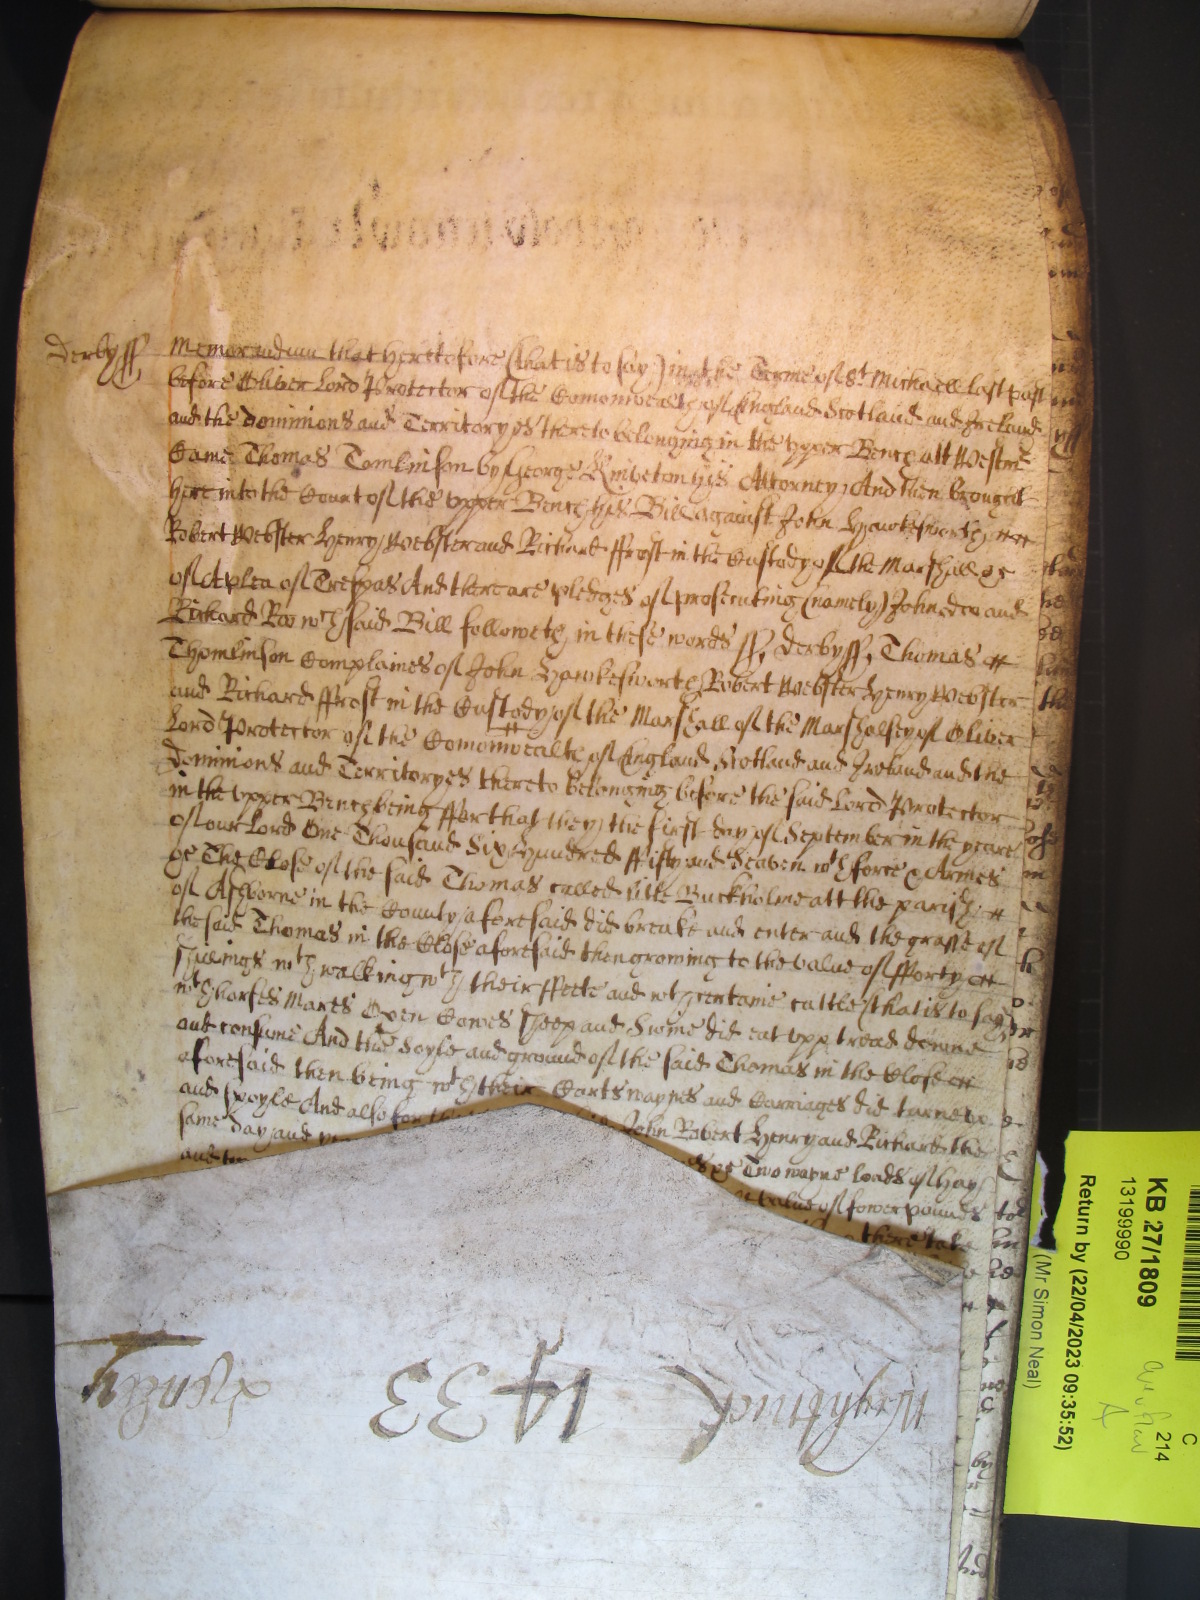 Derby ff
Memorandum that heretofore (that is to say) in the Terme of St Michaell last past
before Oliver Lord Protector of the Comonwealth of England Scotland and Ireland
and the Dominions and Territoryes thereto belonging in the upper Bench att Westmr
Came Thomas Tomlinson by George Kniveton his Attorney, And then brought
here into the Court of the upper Bench his Bill against John Hawkesworth
Robert Webster Henry Webster and Richard ffrost in the Custody of the Marshall &c
of A plea of Trespas And there are pledges of prosecuting (namely) John Doo and
Richard Roo wch said Bill followeth in these words ff, Derby ff, Thomas
Thomlinson Complaines of John Hawkesworth Robert Webster Henry Webster
and Richard ffrost in the Custody of the Marshall of the Marshalsey of Oliver
Lord Protector of the Comonwealth of England Scotland and Ireland and the
Dominions and Territoryes thereto belonging before the said Lord Protector
in the upper Bench being ffor that they the first day of September in the yeare
of our Lord One Thousand Six Hundred ffifty and Seaven wth force & Armes
&c The Close of the said Thomas called little Buckholme att the parish
of Ashborne in the County aforesaid did breake and enter and the grasse of
the said Thomas in the Close aforesaid then growing to the value of fforty
shillings wth walking wth their ffeete and wth certaine cattle (that is to say)
wth horses Mares Oxen Cowes sheep and Swine did eat upp tread downe
and consume And the Soyle and ground of the said Thomas in the Close
aforesaid then being wth their Carts waynes and Carriages did turne up
and spoyle And also for that John Robert Henry and Richard the
same day and &c Two wayne loads of hay
and value of fower pounds
there take
Weightwick 1433 Henley
KB 27/1809
13199990
C
214
(Mr Simon Neal)
Return by (22/04/2023 09:35:52)